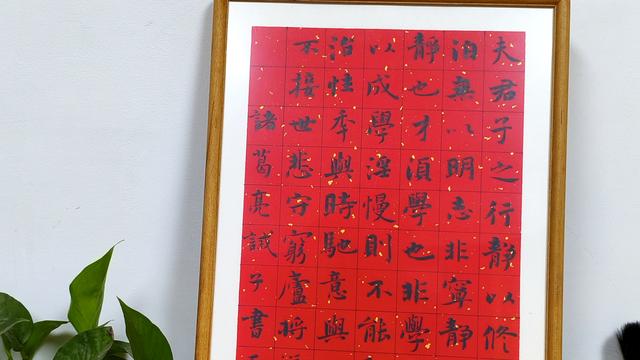 夫君子之行靜以修
泊無以明志非寧靜
靜也才須學也非學
以成學淫慢則不能
治性秊與時馳意與
不接世悲守窮廬將
諸葛亮誡子書